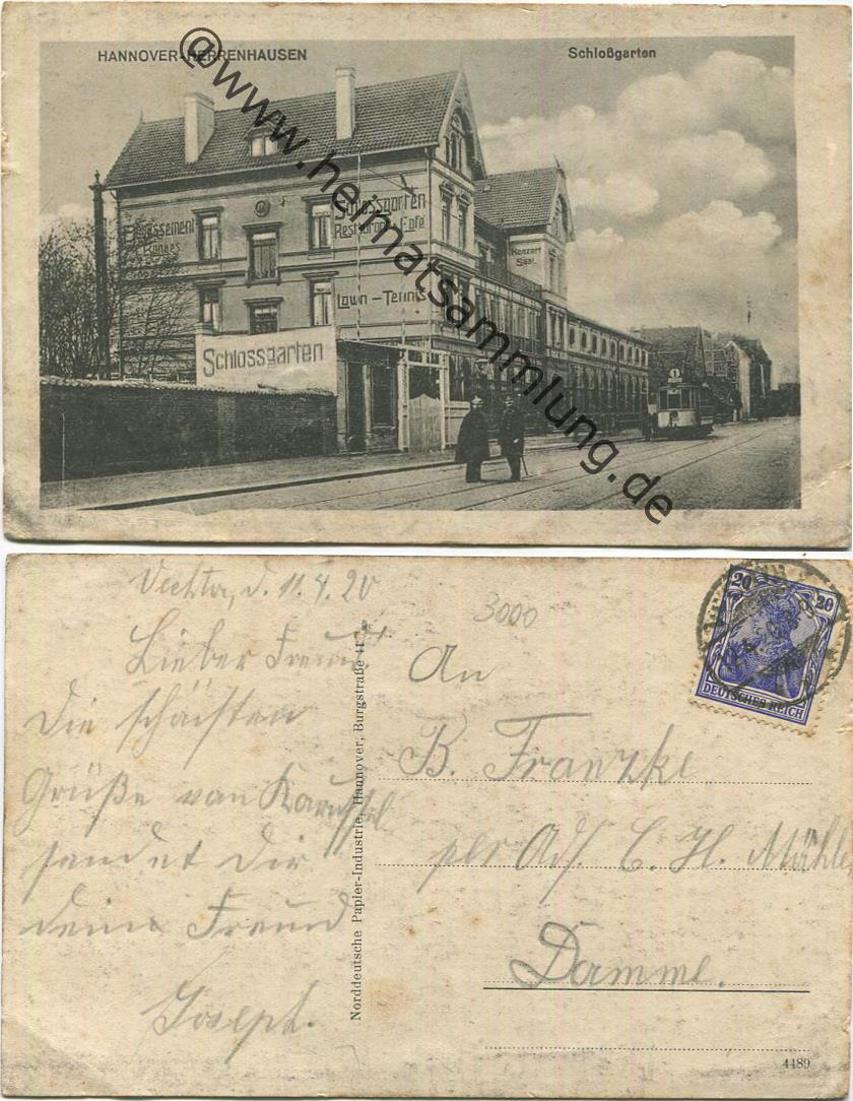 HANNOVER-HERRENHAUSEN
Schloßgarten
Schlossgarten
Restaurant Café
Konzert
Saal
Lawn-Tennis
Schlossgarten
1
@www.heimatsammlung.de
Vechta, d. 11.4.20
3000
Lieber Freund.
Die schönsten
Grüße von
sendet Dir
dein Freund
Joseph.
An
B. Franzke
per Adr. C. H.
Damme.
20 20
DEUTSCHES REICH
Norddeutsche Papier-Industrie, Hannover, Burgstraße 41
4489